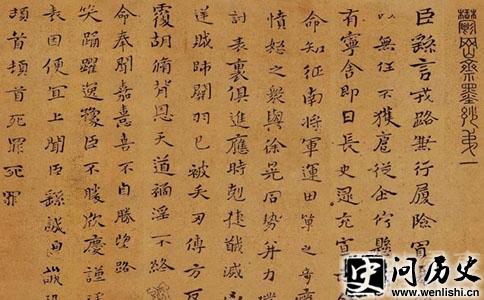 鬱岡齋墨妙第一
臣繇言戎路兼行履險冒
以無任不獲扈從企佇懸
有寧舍即日長史逯充宣
命知征南將軍運田單之奇
憤怒之眾與徐晃同勢并力撲
討表裏俱進應時剋捷馘滅
逆賊帥關羽已被矢刃傅方反
覆胡脩背恩天道禍淫不終
命奉聞嘉憙喜不自勝望路
笑踊躍逸豫臣不勝欣慶謹
表因便宜上聞臣繇誠惶誠恐
頓首頓首死罪死罪
史问历史
www.wenlishi.cn